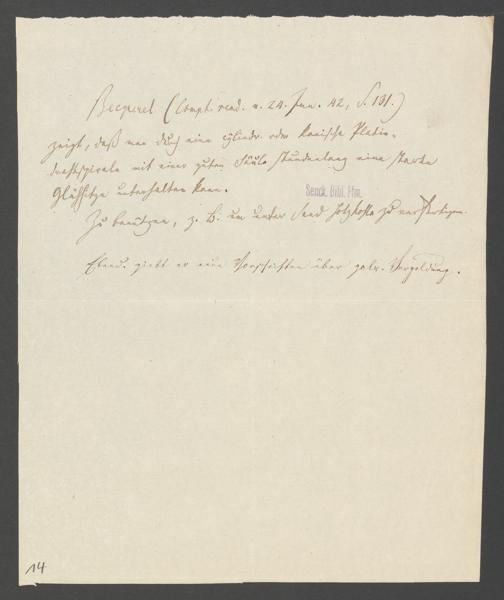 Becquerel (Compt. rend. v. 24. Jan. 42, S. 131.)
zeigt, daß man durch eine cylindr. oder konische Platin-
drahtspirale mit einer guten Säule stundenlang eine starke
Glühhitze unterhalten kann.
Senck. Bibl. Ffm.
Zu benützen, z. B. um unter Sand Holzkohle zu verfertigen.
Ebend. giebt er eine Vorschriften über galv. Vergoldung.
14